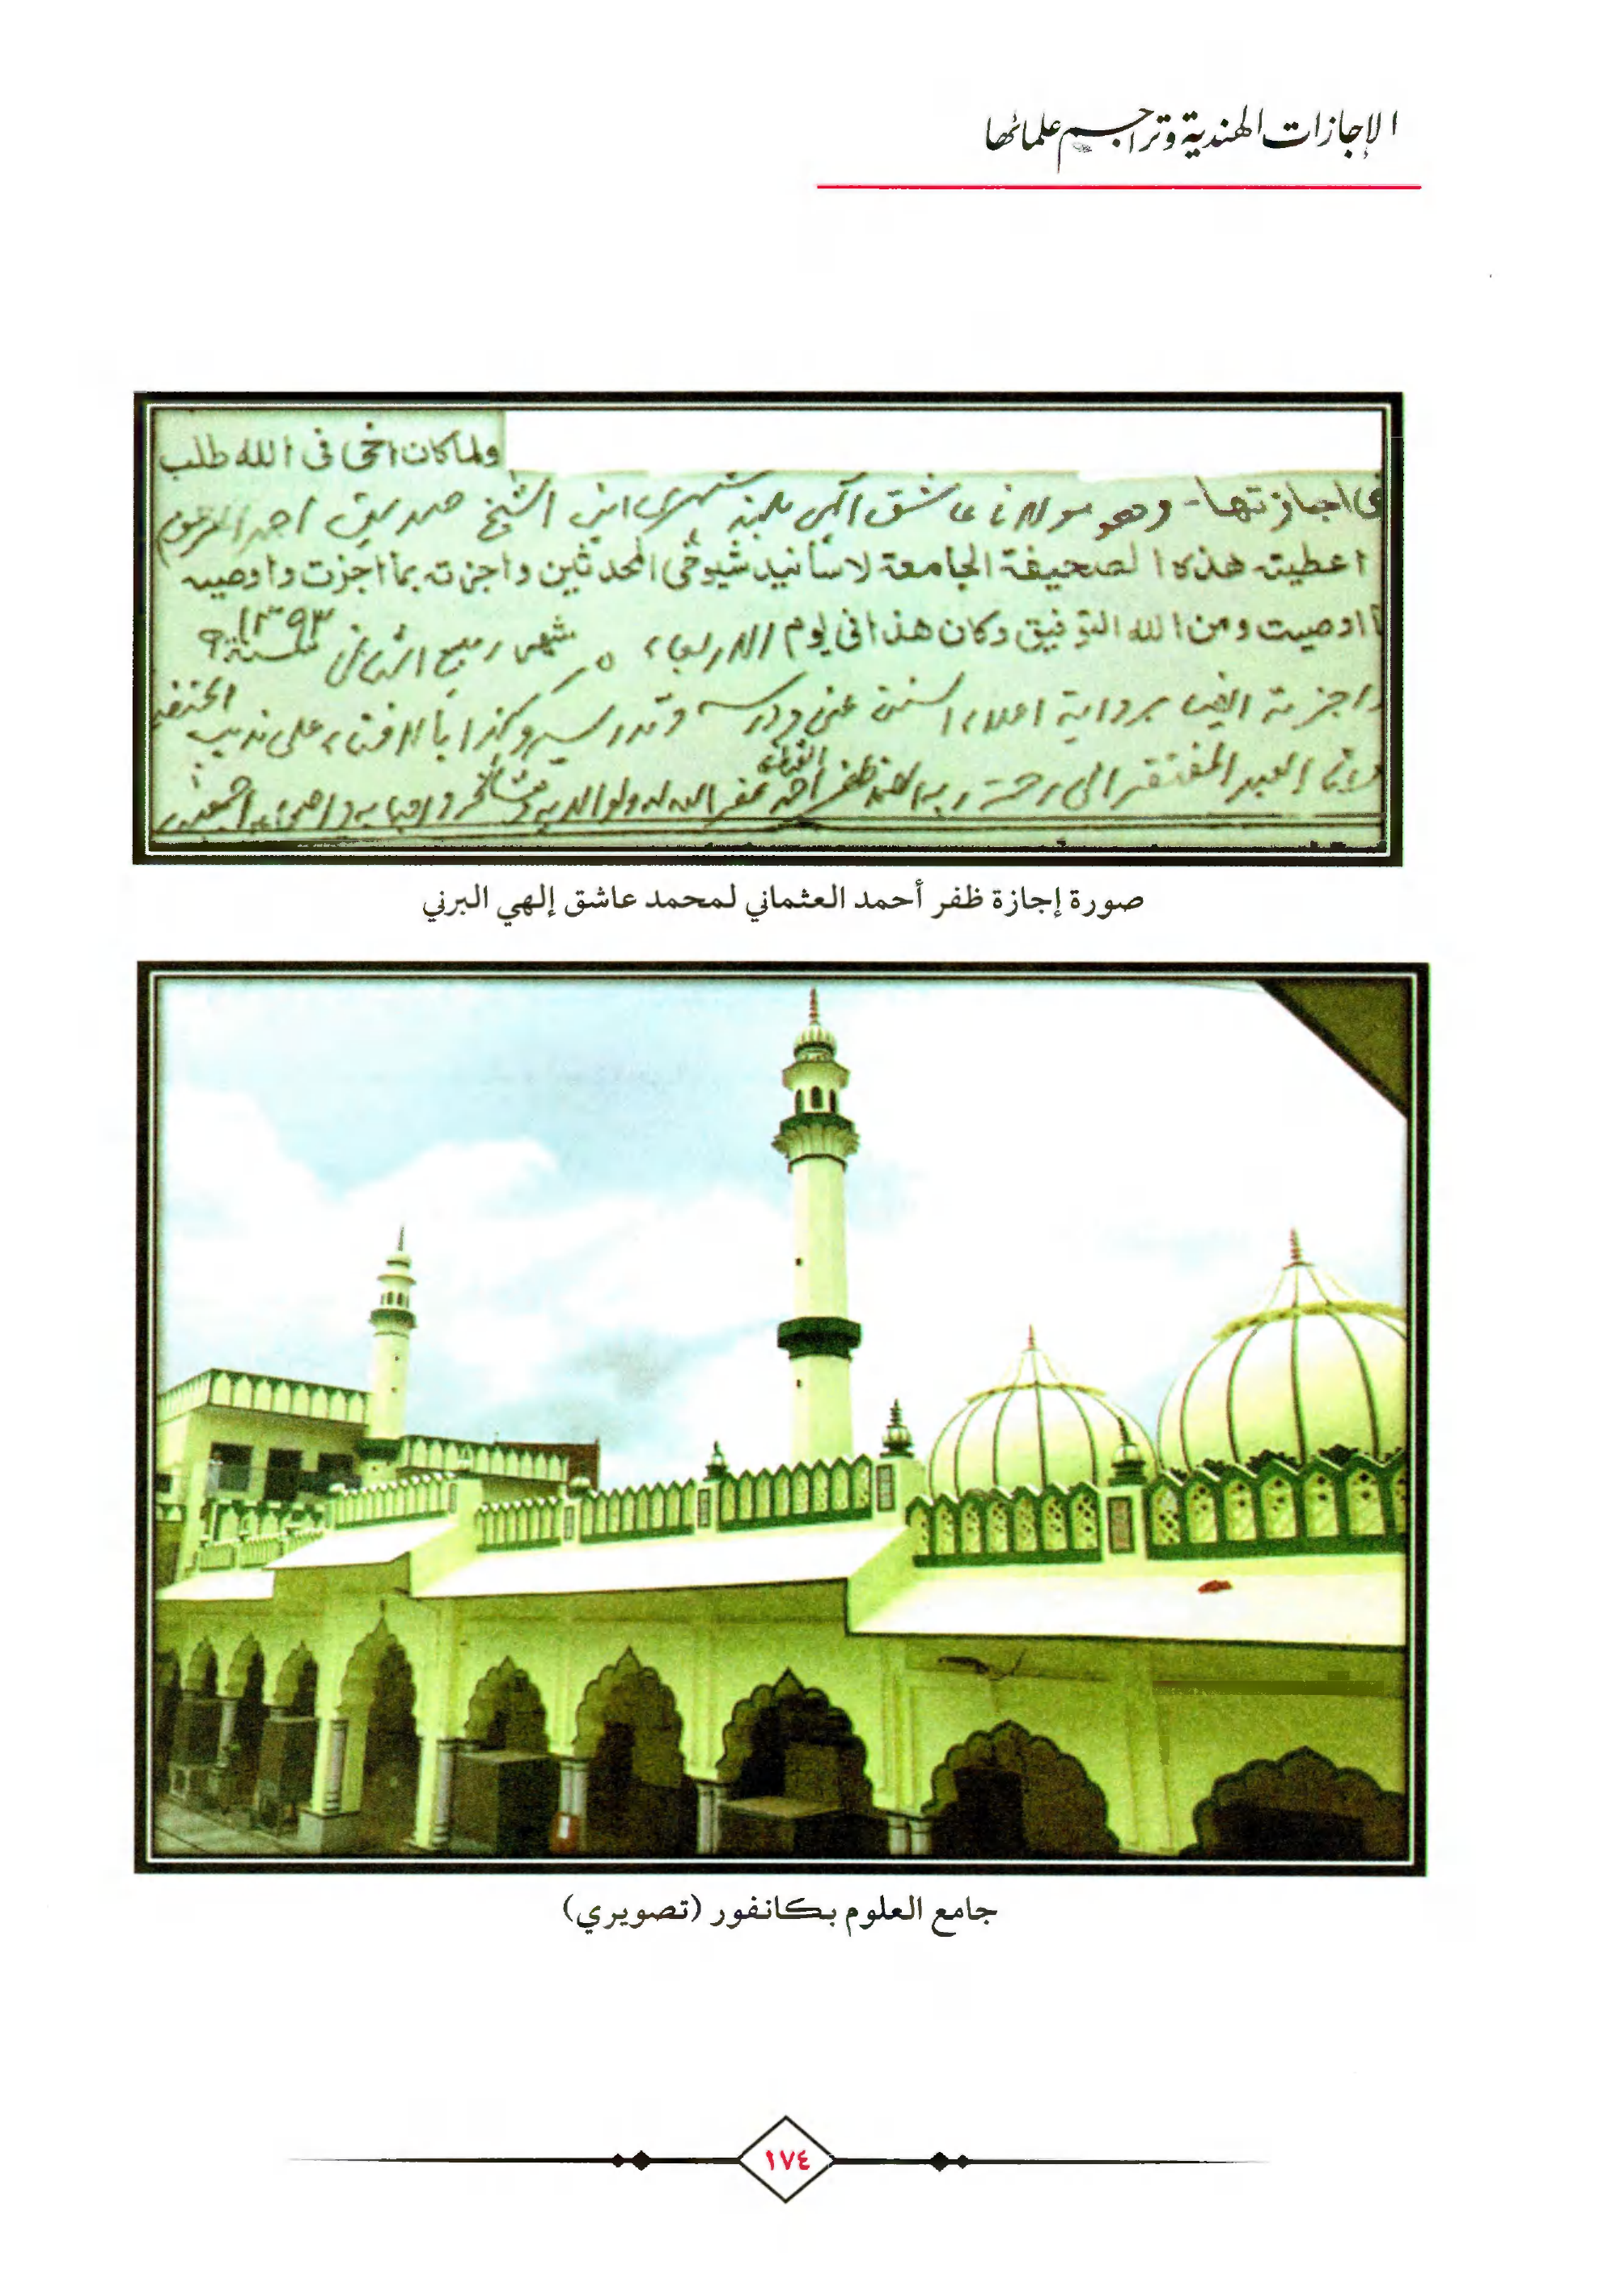 الإجازات الهندية وتراجم علمائها
ولما كان اخى فى الله طلب
اجازتها - وهو مولانا عاشق الهى بلند شهرى ابن الشيخ صديق احمد المرحوم
اعطيته هذه الصحيفة الجامعة لاسانيد شيوخى المحدثين واجزته بما اجزت واوصيه
اوصيت ومن الله التوفيق وكان هذا فى يوم الاربعاء ٥ شهر ربيع الثانى سنة ١٣٩٣
واجزته ايضا برواية اعلاء السنن عنى ودرسه وتدريسه وكذا بالافتاء على مذهب الحنفية
وانا العبد المفتقر الى رحمة ربه الصمد ظفر احمد العثمانى غفر الله له ولوالديه ومشائخه واحبابه واصحابه اجمعين
صورة إجازة ظفر أحمد العثماني لمحمد عاشق إلهي البرني
جامع العلوم بكانفور (تصويري)
١٧٤